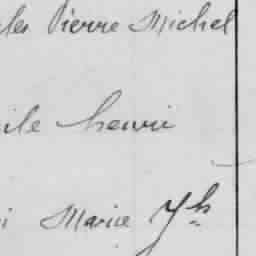 les Pierre Michel
ile henri
i Marie Jh